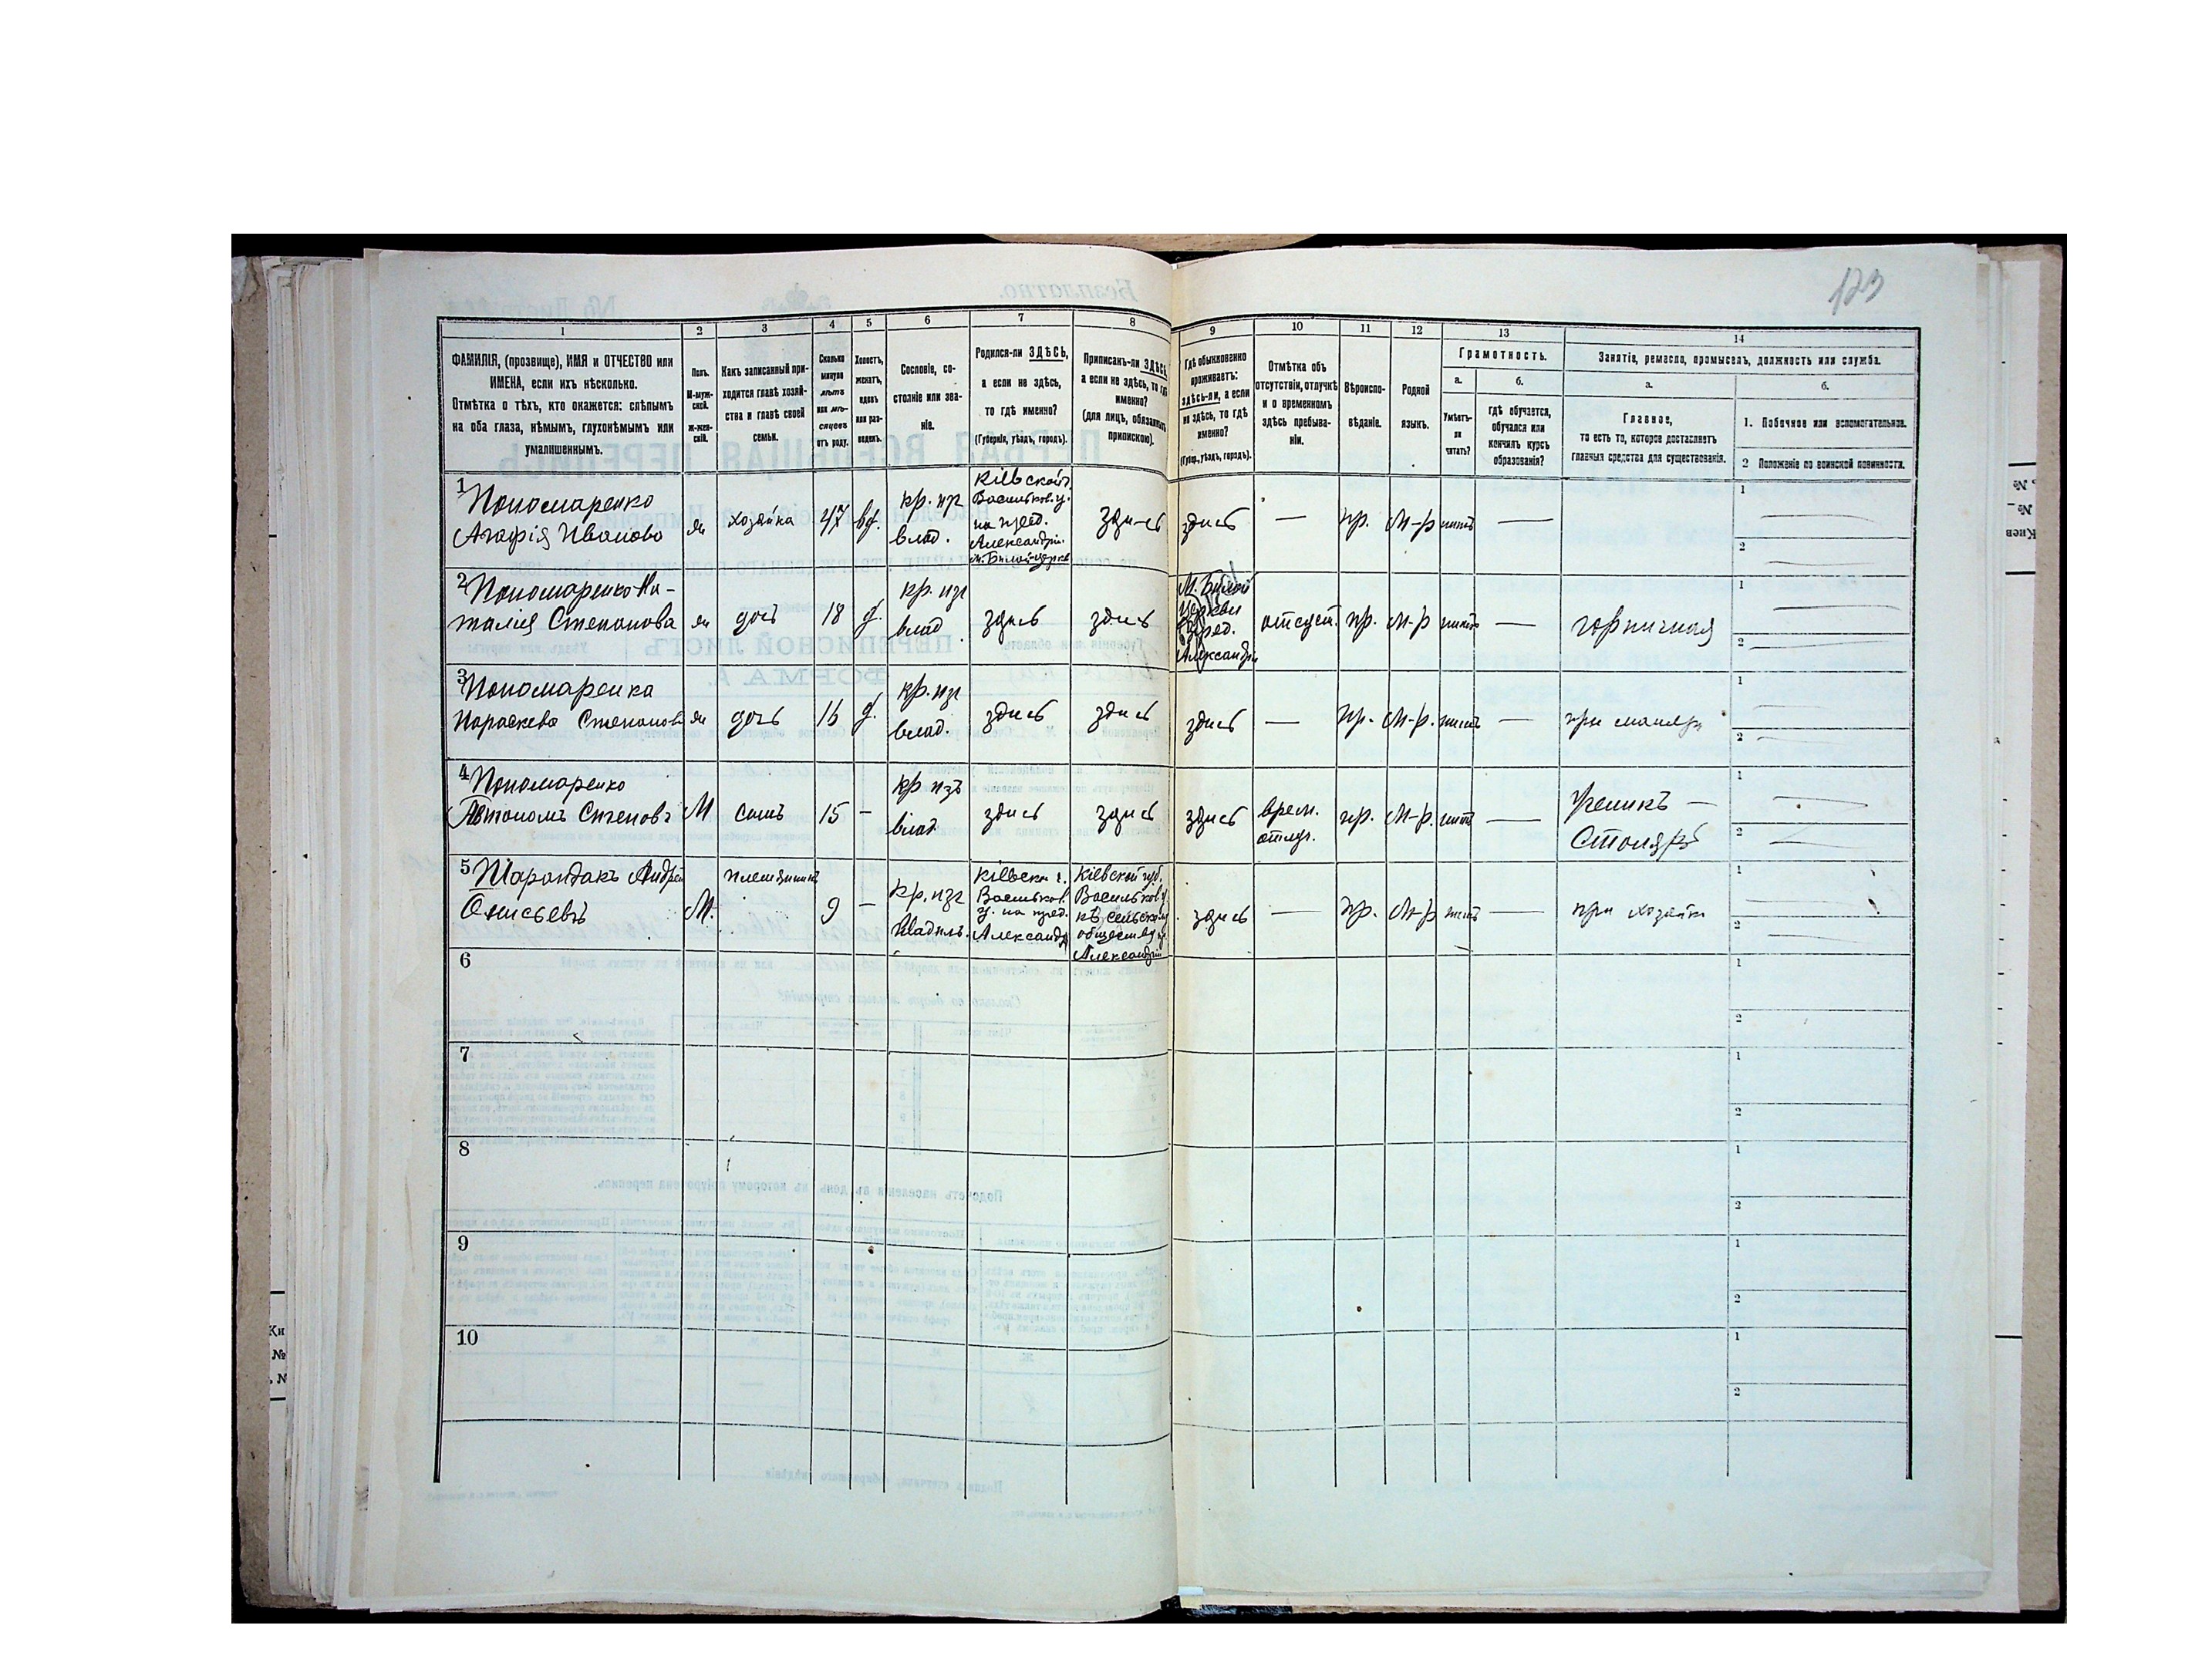 123
1 2 3 4 5 6 7 8 9 10 11 12 13 14
ФАМИЛІЯ, (прозвище), ИМЯ и ОТЧЕСТВО или
ИМЕНА, если ихъ нѣсколько.
Отмѣтка о тѣхъ, кто окажется: слѣпымъ
на оба глаза, нѣмымъ, глухонѣмымъ или
умалишеннымъ.
Полъ.
М-муж-
ской.
ж-жен-
скій.
Какъ записанный при-
ходится главѣ хозяй-
ства и главѣ своей
семьи.
Сколько
минуло
лѣтъ
или мѣ-
сяцевъ
отъ роду.
Холостъ,
женатъ,
вдовъ
или раз-
веденъ.
Сословіе, со-
стояніе или зва-
ніе.
Родился-ли ЗДѢСЬ,
а если не здѣсь,
то гдѣ именно?
(Губернія, уѣздъ, городъ).
Приписанъ-ли ЗДѢСЬ,
а если не здѣсь, то гдѣ
именно?
(для лицъ, обязанныхъ
припискою).
Гдѣ обыкновенно
проживаетъ:
здѣсь-ли, а если
не здѣсь, то гдѣ
именно?
(Губер., уѣздъ, городъ).
Отмѣтка объ
отсутствіи, отлучкѣ
и о временномъ
здѣсь пребыва-
ніи.
Вѣроиспо-
вѣданіе.
Родной
языкъ.
Грамотность.
а.
Умѣетъ-
ли
читать?
б.
гдѣ обучается,
обучался или
кончилъ курсъ
образованія?
Занятіе, ремесло, промыселъ, должность или служба.
а.
Главное,
то есть то, которое доставляетъ
главныя средства для существованія.
б.
1. Побочное или вспомогательное.
2 Положеніе по воинской повинности.
1 Пономаренко
Агафія Иванова
ж
хозяйка
47
вд.
кр. изъ
влад.
Кіевской г.
Васильков. у.
на пред.
Александрія
м. Бѣлой-Церкв
здѣсь
здѣсь
—
пр.
М-р
нѣтъ
—
1
2
2 Пономаренко На-
талія Степанова
ж
дочь
18
д.
кр. изъ
влад.
здѣсь
здѣсь
М. Бѣлой
Церкви
пред.
Александрія
отсут.
пр.
М-р
нѣтъ
—
горничная
1
2
3 Пономаренко
Параскева Степанов
ж
дочь
16
д.
кр. изъ
влад.
здѣсь
здѣсь
здѣсь
—
пр.
М-р.
нѣтъ
—
при матери
1
2
4 Пономаренко
Автономъ Степановъ
М
сынъ
15
—
кр изъ
влад.
здѣсь
здѣсь
здѣсь
врем.
отлуч.
пр.
М-р.
нѣтъ
—
Ученикъ —
Столяръ
1
2
5 Шарандакъ Андрей
Онисьевъ
М.
племянникъ
9
—
кр. изъ
владѣль.
Кіевск г.
Васильков.
у. на пред.
Александр
Кіевской губ.
Васильков. у.
къ сельскому
обществу
Александрій
здѣсь
—
пр.
М-р
нѣтъ
—
при хозяйкѣ
1
2
6
1
2
7
1
2
8
1
2
9
1
2
10
1
2